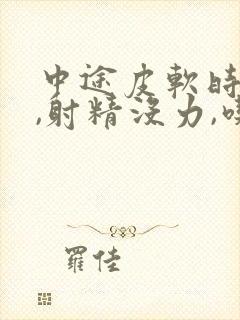 中途皮軟時
,射精沒力,
羅佳